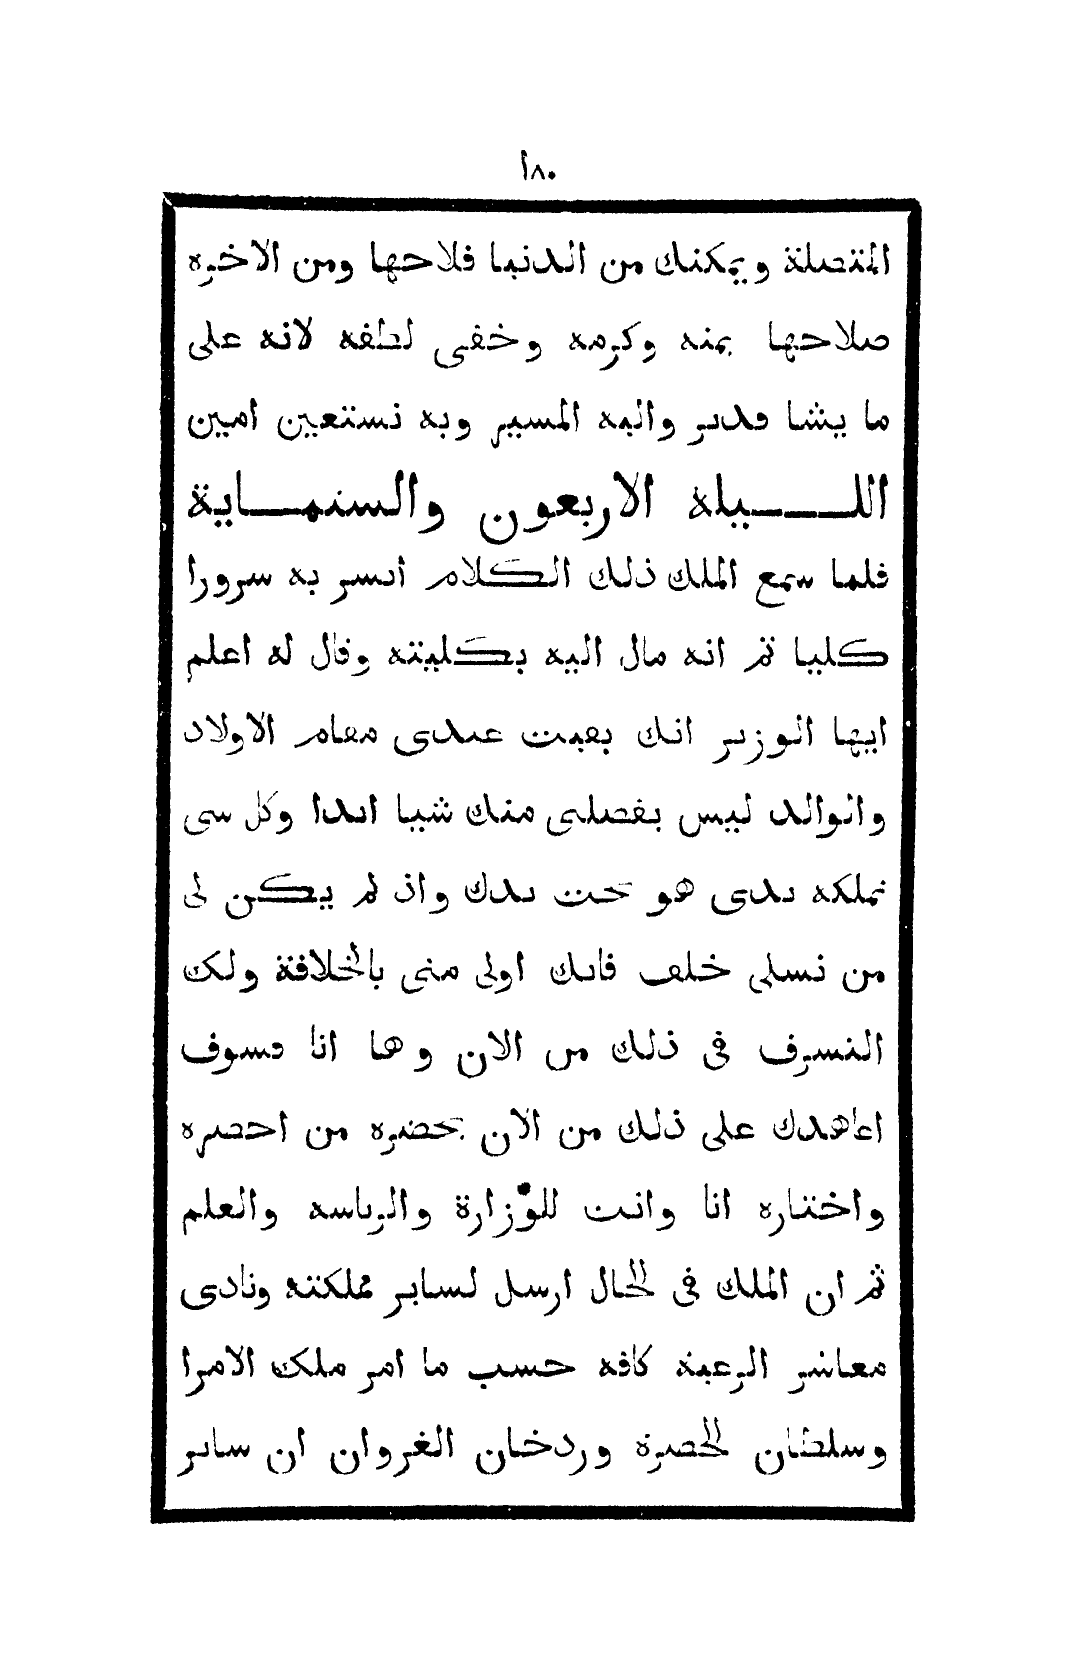 ١٨٠
المتصلة ويمكنك من الدنيا فلاحها ومن الاخره
صلاحها بمنه وكرمه وخفى لطفه لانه على
ما يشا قدير واليه المسير وبه نستعين امين
الليلة الاربعون والستماية
فلما سمع الملك ذلك الكلام انسر به سرورا
كليا ثم انه مال اليه بكليته وقال له اعلم
ايها الوزير انك بقيت عندى مقام الاولاد
والوالد ليس بفصلى منك شيا ابدا وكل شى
تملكه يدى هو تحت يدك واذ لم يكن لى
من نسلى خلف فانك اولى منى بالخلافة ولك
التسرف فى ذلك من الان وها انا فسوف
اعاهدك على ذلك من الان بحضره من احضره
واختاره انا وانت للوزارة والرياسه والعلم
ثم ان الملك فى الحال ارسل لساير مملكته ونادى
معاشر الرعية كافه حسب ما امر ملك الامرا
وسلطان الحضرة وردخان الغروان ان ساير